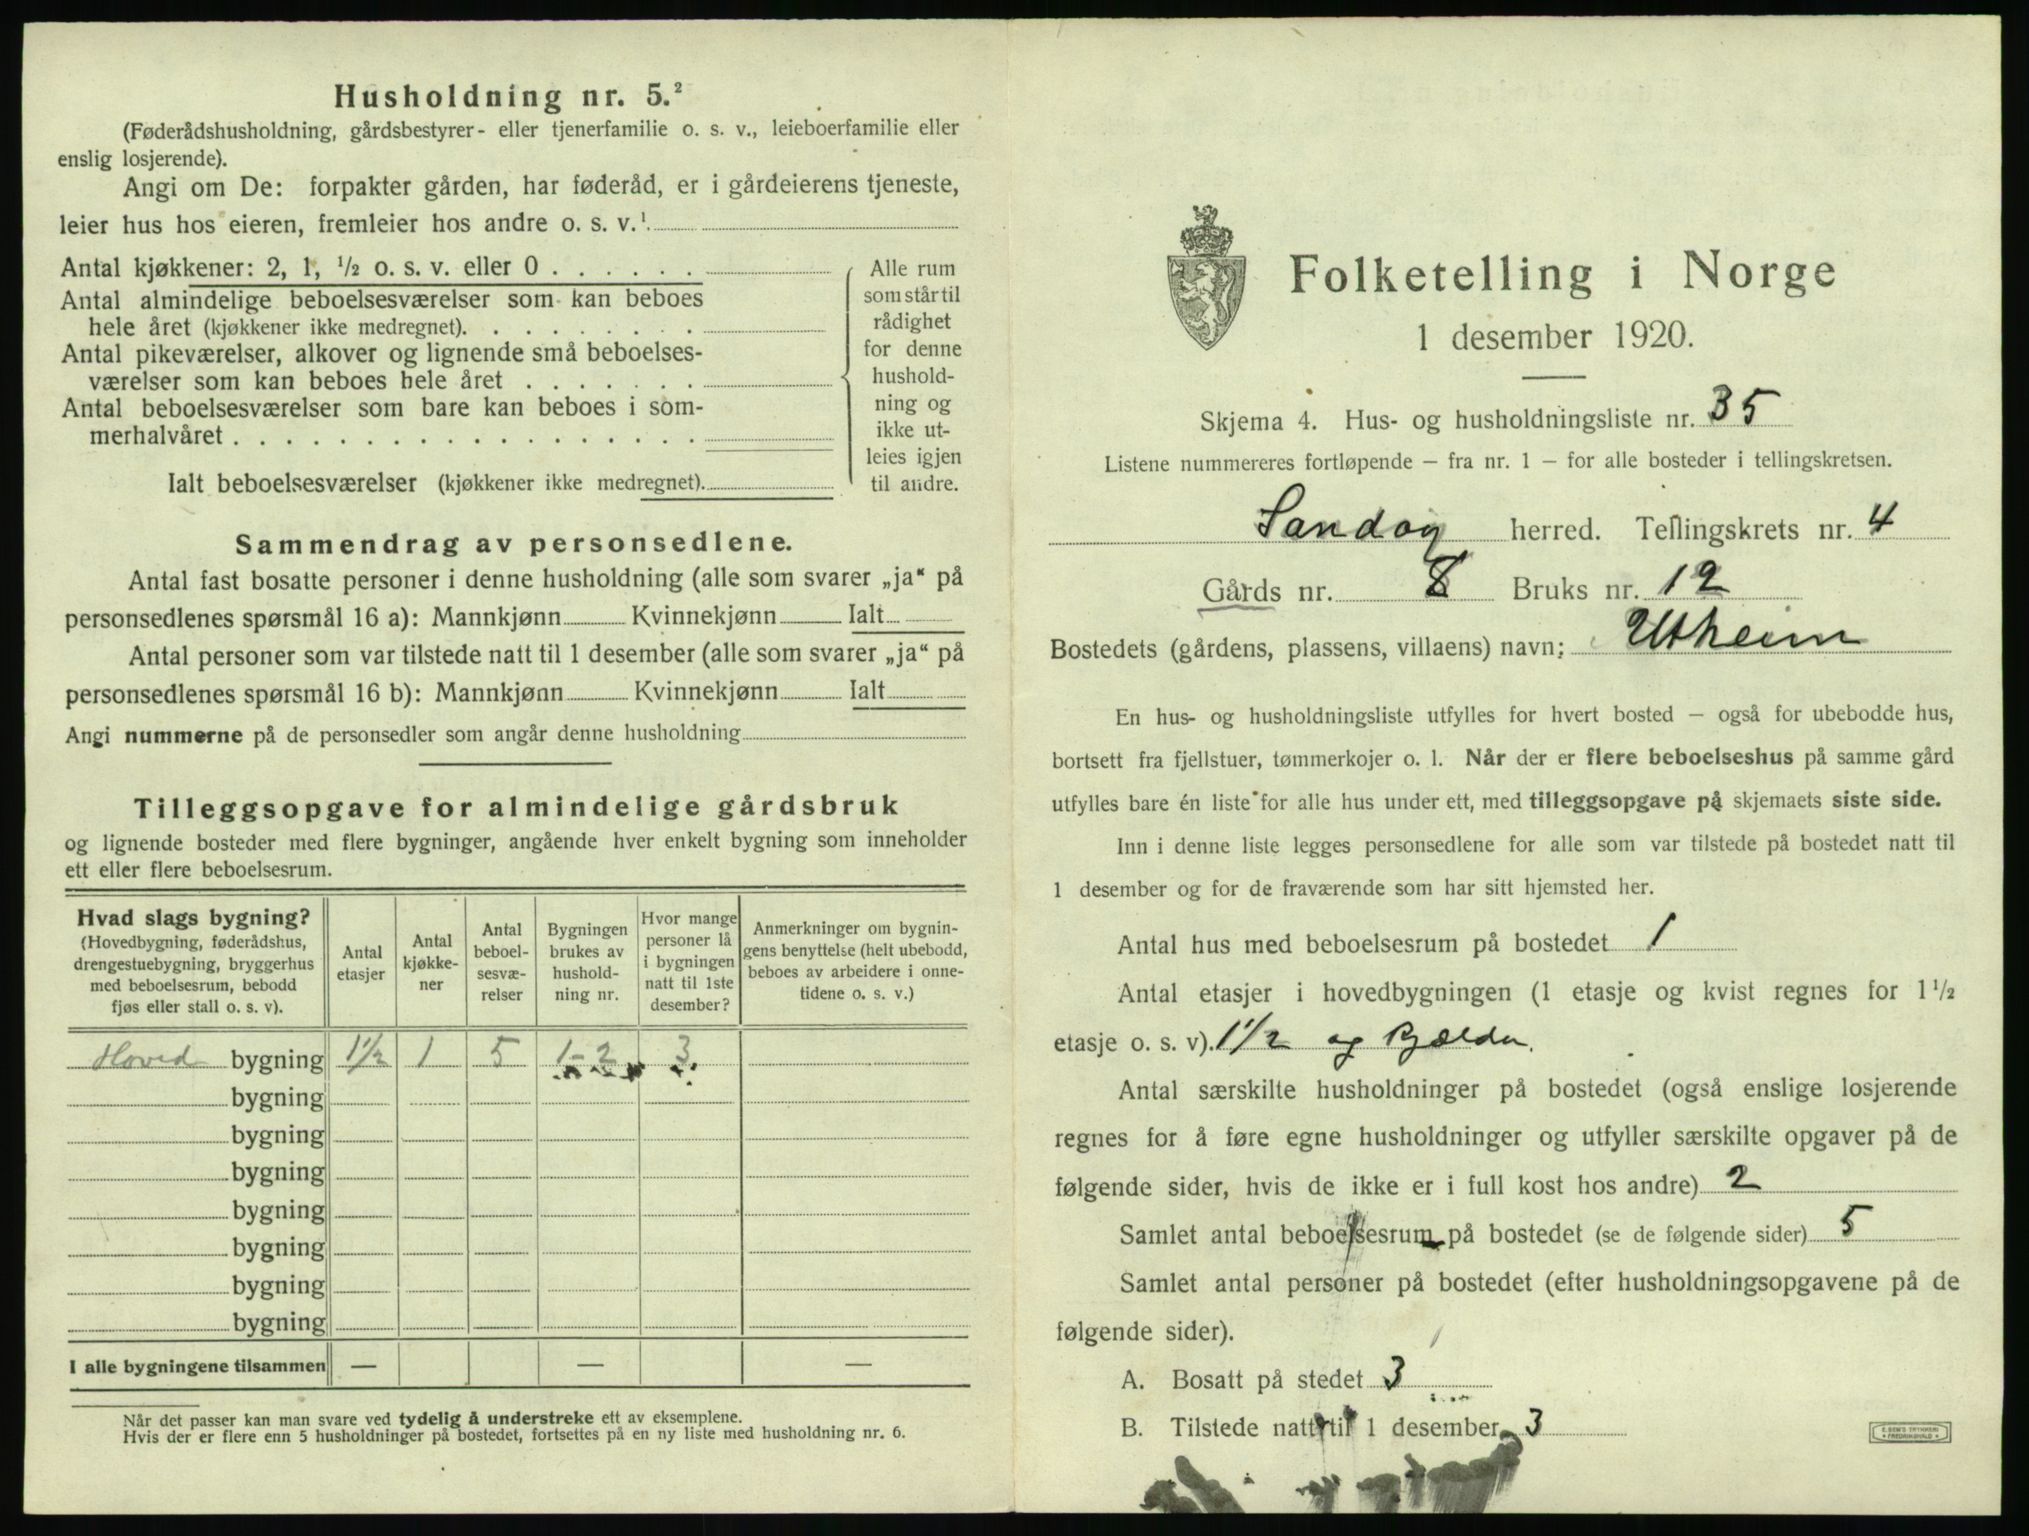 Husholdning nr. 5.²
(Føderådshusholdning, gårdsbestyrer- eller tjenerfamilie o. s. v., leieboerfamilie eller
enslig losjerende).
Angi om De: forpakter gården, har føderåd, er i gårdeierens tjeneste,
leier hus hos eieren, fremleier hos andre o. s. v.¹
Antal kjøkkener: 2, 1, ½ o. s. v. eller 0 . . . . . .
Antal almindelige beboelsesværelser som kan beboes
hele året (kjøkkener ikke medregnet). . . . . . . . .
Antal pikeværelser, alkover og lignende små beboelses-
værelser som kan beboes hele året . . . . . . .
Antal beboelsesværelser som bare kan beboes i som-
merhalvåret . . . . . . . . . . . . . . . . . .
Ialt beboelsesværelser (kjøkkener ikke medregnet).
Alle rum
som står til
rådighet
for denne
hushold-
ning og
ikke ut-
leies igjen
til andre.
Sammendrag av personsedlene.
Antal fast bosatte personer i denne husholdning (alle som svarer „ja“ på
personsedlenes spørsmål 16 a): Mannkjønn Kvinnekjønn Ialt
Antal personer som var tilstede natt til 1 desember (alle som svarer „ja“ på
personsedlenes spørsmål 16 b): Mannkjønn Kvinnekjønn Ialt
Angi nummerne på de personsedler som angår denne husholdning
Tilleggsopgave for almindelige gårdsbruk
og lignende bosteder med flere bygninger, angående hver enkelt bygning som inneholder
ett eller flere beboelsesrum.
Hvad slags bygning?
(Hovedbygning, føderådshus,
drengestuebygning, bryggerhus
med beboelsesrum, bebodd
fjøs eller stall o. s. v).
Antal
etasjer
Antal
kjøkke-
ner
Antal
beboel-
sesvæ-
relser
Bygningen
brukes av
hushold-
ning nr.
Hvor mange
personer lå
i bygningen
natt til 1ste
desember?
Anmerkninger om bygnin-
gens benyttelse (helt ubebodd,
beboes av arbeidere i onne-
tidene o. s. v.)
Hoved bygning 1½ 1 5 1-2 3
bygning
bygning
bygning
bygning
bygning
bygning
bygning
I alle bygningene tilsammen — — —
Når det passer kan man svare ved tydelig å understreke ett av eksemplene.
Hvis der er flere enn 5 husholdninger på bostedet, fortsettes på en ny liste med husholdning nr. 6.
Folketelling i Norge
1 desember 1920.
Skjema 4. Hus- og husholdningsliste nr. 35
Listene nummereres fortløpende – fra nr. 1 – for alle bosteder i tellingskretsen.
Sandøy herred. Tellingskrets nr. 4
Gårds nr. 8 Bruks nr. 12
Bostedets (gårdens, plassens, villaens) navn: Utheim
En hus- og husholdningsliste utfylles for hvert bosted – også for ubebodde hus,
bortsett fra fjellstuer, tømmerkojer o. l. Når der er flere beboelseshus på samme gård
utfylles bare én liste for alle hus under ett, med tilleggsopgave på skjemaets siste side.
Inn i denne liste legges personsedlene for alle som var tilstede på bostedet natt til
1 desember og for de fraværende som har sitt hjemsted her.
Antal hus med beboelsesrum på bostedet 1
Antal etasjer i hovedbygningen (1 etasje og kvist regnes for 1½
etasje o. s. v). 1½ og Kjælder.
Antal særskilte husholdninger på bostedet (også enslige losjerende
regnes for å føre egne husholdninger og utfyller særskilte opgaver på de
følgende sider, hvis de ikke er i full kost hos andre) 2
Samlet antal beboelsesrum på bostedet (se de følgende sider) 5
Samlet antal personer på bostedet (efter husholdningsopgavene på de
følgende sider).
A. Bosatt på stedet 3
B. Tilstede natt til 1 desember 3
E. SEM'S TRYKKERI
FREDRIKSHALD